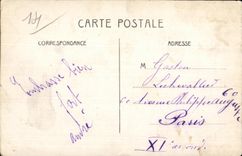 CARTE POSTALE
CORRESPONDANCE
ADRESSE
Embrasse bien
fort
André
M. Gaston
Lechevallier
60 avenue Philippe Auguste
Paris
XIe